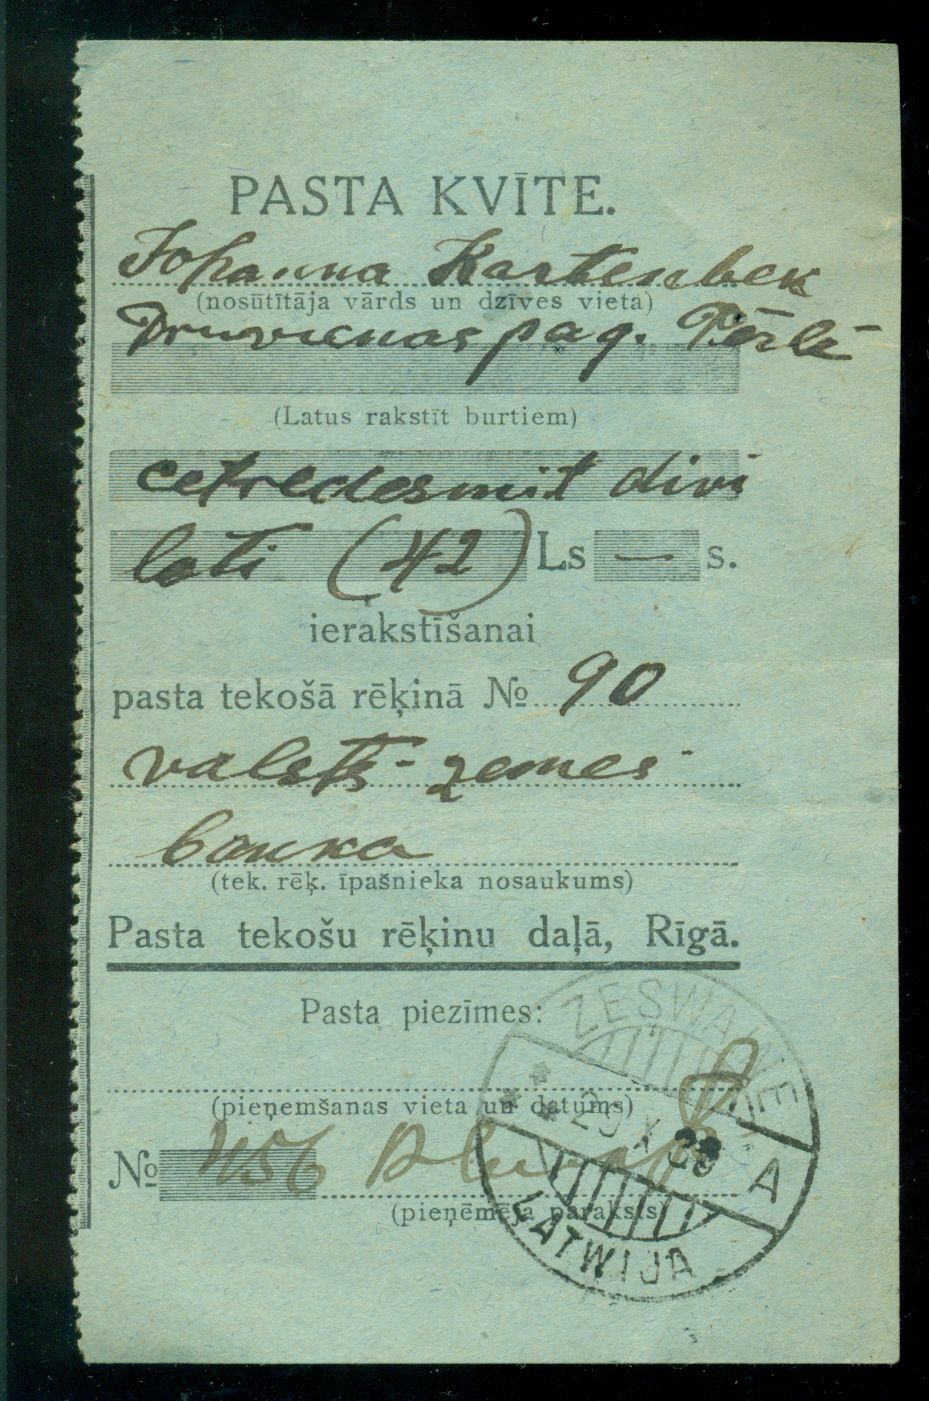 PASTA KVĪTE.
Johanna Kartenbek
(nosūtītāja vārds un dzīves vieta)
Druvienas pag.
(Latus rakstīt burtiem)
cetrdesmit divi
lati (42) Ls — s.
ierakstīšanai
pasta tekošā rēķinā № 90
valsts-zemes
banka
(tek. rēķ. īpašnieka nosaukums)
Pasta tekošu rēķinu daļā, Rīgā.
Pasta piezīmes:
ZESWAINE
(pieņemšanas vieta un datums)
X
№ 456
A
(pieņēmēja paraksts)
LATWIJA